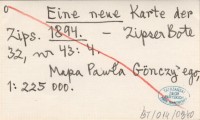 Eine neue Karte der
Zips. 1894. – Zipser Bote
32, nr 43: 4.
Mapa Pawła Gönczy'ego,
1: 225 000.